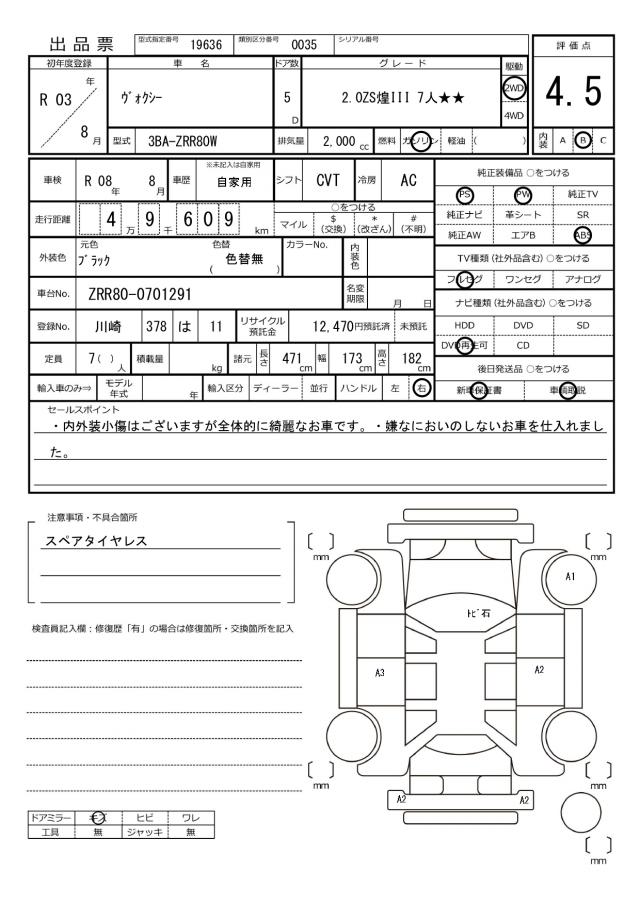 出品票 型式指定番号 19636 類別区分番号 0035 シリアル番号
評価点
4.5
内装 A B C
初年度登録 車名 ドア数 グレード 駆動
R 03 年 8 月
ヴォクシー
5 D
2.0ZS煌III 7人★★
2WD
4WD
型式 3BA-ZRR80W 排気量 2,000 cc 燃料 ガソリン 軽油 ( )
車検 R 08 年 8 月 車歴 ※未記入は自家用 自家用 シフト CVT 冷房 AC
走行距離 4 万 9 千 6 0 9 km
○をつける
マイル $(交換) *(改ざん) #(不明)
外装色 元色 ブラック 色替 ( 色替無 ) カラーNo. 内装色
車台No. ZRR80-0701291 名変期限 月 日
登録No. 川崎 378 は 11 リサイクル預託金 12,470円預託済 未預託
定員 7( ) 人 積載量 kg 諸元 長さ 471 cm 幅 173 cm 高さ 182 cm
輸入車のみ⇒ モデル年式 年 輸入区分 ディーラー 並行 ハンドル 左 右
純正装備品 ○をつける
PS PW 純正TV
純正ナビ 革シート SR
純正AW エアB ABS
TV種類 (社外品含む) ○をつける
フルセグ ワンセグ アナログ
ナビ種類 (社外品含む) ○をつける
HDD DVD SD
DVD再生可 CD
後日発送品 ○をつける
新車保証書 車輌取説
セールスポイント
・内外装小傷はございますが全体的に綺麗なお車です。・嫌なにおいのしないお車を仕入れまし
た。
注意事項・不具合箇所
スペアタイヤレス
検査員記入欄：修復歴「有」の場合は修復箇所・交換箇所を記入
ドアミラー キズ ヒビ ワレ
工具 無 ジャッキ 無
〔 〕 mm
〔 〕 mm
A1
トビ石
A3
A2
〔 〕 mm
〔 〕 mm
A2
A2
〔 〕 mm